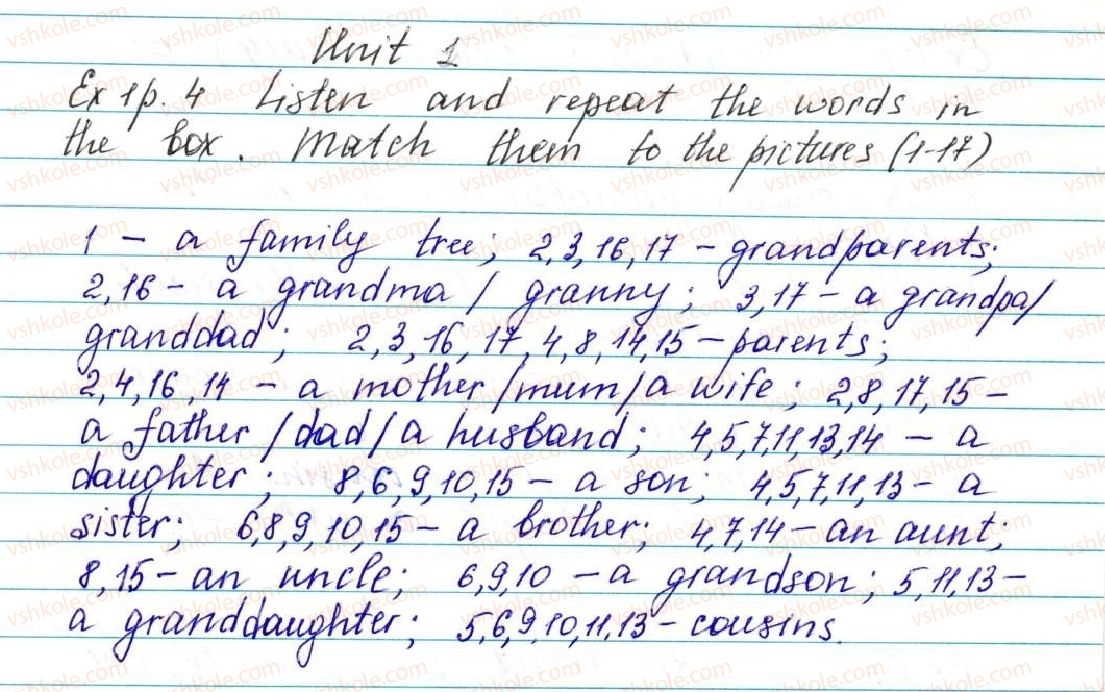 Unit 1
Ex 1 p. 4 Listen and repeat the words in
the box. Match them to the pictures (1-17)
1 – a family tree; 2, 3, 16, 17 – grandparents;
2, 16 – a grandma / granny; 3, 17 – a grandpa/
granddad; 2, 3, 16, 17, 4, 8, 14, 15 – parents;
2, 4, 16, 14 – a mother /mum/a wife; 2, 8, 17, 15 –
a father /dad/a husband; 4, 5, 7, 11, 13, 14 – a
daughter; 8, 6, 9, 10, 15 – a son; 4, 5, 7, 11, 13 – a
sister; 6, 8, 9, 10, 15 – a brother; 4, 7, 14 – an aunt;
8, 15 – an uncle; 6, 9, 10 – a grandson; 5, 11, 13 –
a granddaughter; 5, 6, 9, 10, 11, 13 – cousins.
vshkole.com